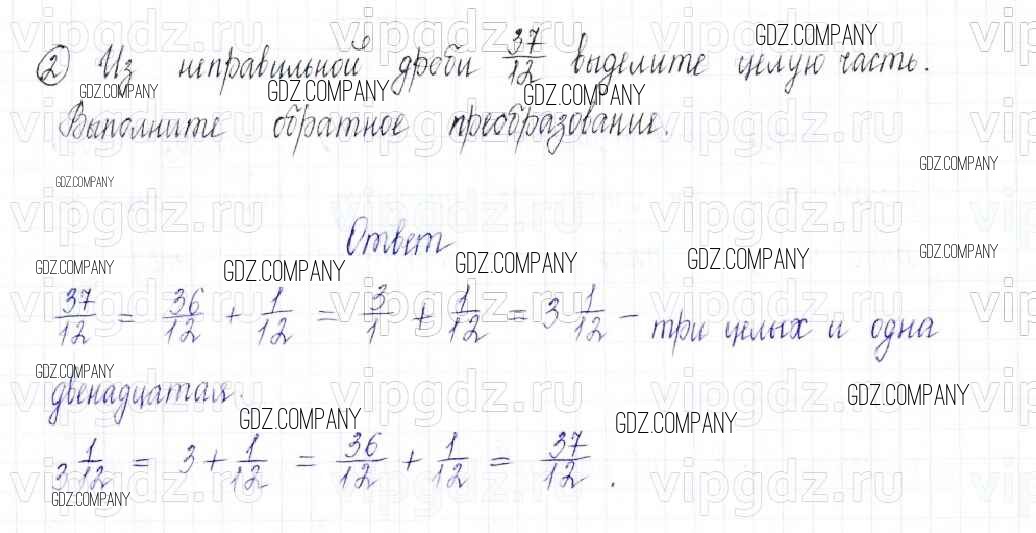 ② Из неправильной дроби 37/12 выделите целую часть.
Выполните обратное преобразование.
Ответ
37/12 = 36/12 + 1/12 = 3/1 + 1/12 = 3 1/12 - три целых и одна
двенадцатая.
3 1/12 = 3 + 1/12 = 36/12 + 1/12 = 37/12 .
GDZ.COMPANY
vipgdz.ru